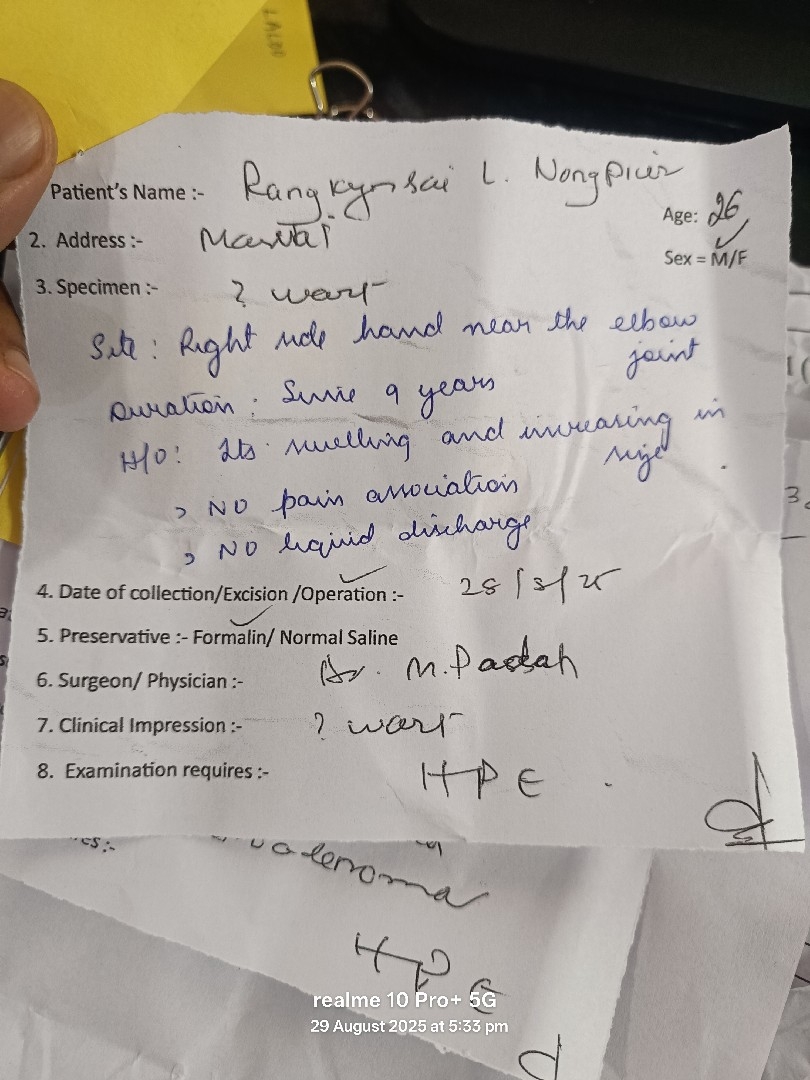 Patient's Name :- Rangkynsai L. Nongpiur
Age: 26
2. Address :- Mawtai
Sex = M/F
3. Specimen :- ? wart
Site : Right side hand near the elbow
joint
Duration : Since 9 years
H/O : Its swelling and increasing in
size .
> NO pain association
> NO liquid discharge
4. Date of collection/Excision /Operation :- 28/8/25
5. Preservative :- Formalin/ Normal Saline
6. Surgeon/ Physician :- Dr. M. Pasdah
7. Clinical Impression :- ? wart
8. Examination requires :- HPE .
HPE
realme 10 Pro+ 5G
29 August 2025 at 5:33 pm